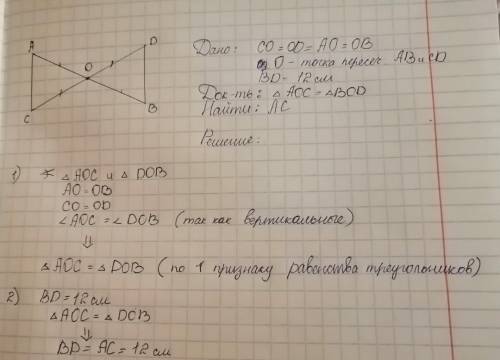 A
D
O
C
B
Дано: CO = OD = AO = OB
O - точка пересеч AB и CD
BD = 12 см
Док-ть: △AOC = △BOD
Найти: AC
Решение:
1) △AOC и △DOB
AO = OB
CO = OD
∠AOC = ∠DOB (так как вертикальные)
⇓
△AOC = △DOB (по 1 признаку равенства треугольников)
2) BD = 12 см
△AOC = △DOB
⇓
BD = AC = 12 см